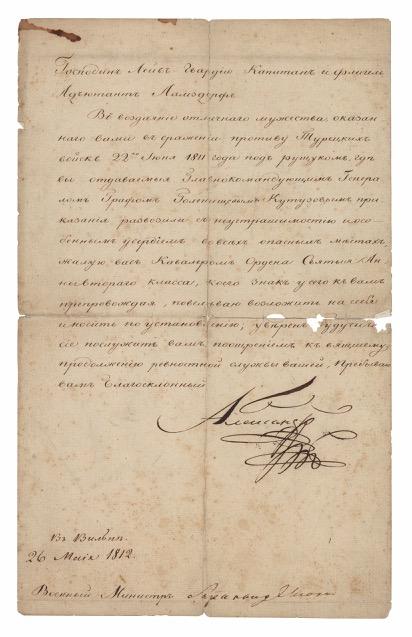 Господинъ Лейбъ Гвардіи Капитанъ и Флигель
Адъютантъ Ламздорфъ
Въ воздаяніе отличнаго мужества, оказан
наго вами въ сраженіи противу Турецкихъ
войскъ 22го Іюня 1811 года подъ рущукомъ, гдѣ
вы отдаваемыя Главнокомандующимъ Генера
ломъ Графомъ Голенищевымъ Кутузовымъ при
казанія развозили съ неустрашимостію и осо
беннымъ усердіемъ во всѣхъ опасныхъ мѣстахъ,
жалую васъ Кавалеромъ Ордена Святыя Ан
ны втораго класса, коего знакъ у сего къ вамъ
препровождая, повелѣваю возложить на себя
и носить по установленію; увѣренъ будучи что
сіе послужитъ вамъ поощреніемъ къ вящшему
продолженію ревностной службы вашей, Пребываю
вамъ благосклонный
Александръ
Въ Вильнѣ
26 Маія 1812.
Военный Министръ